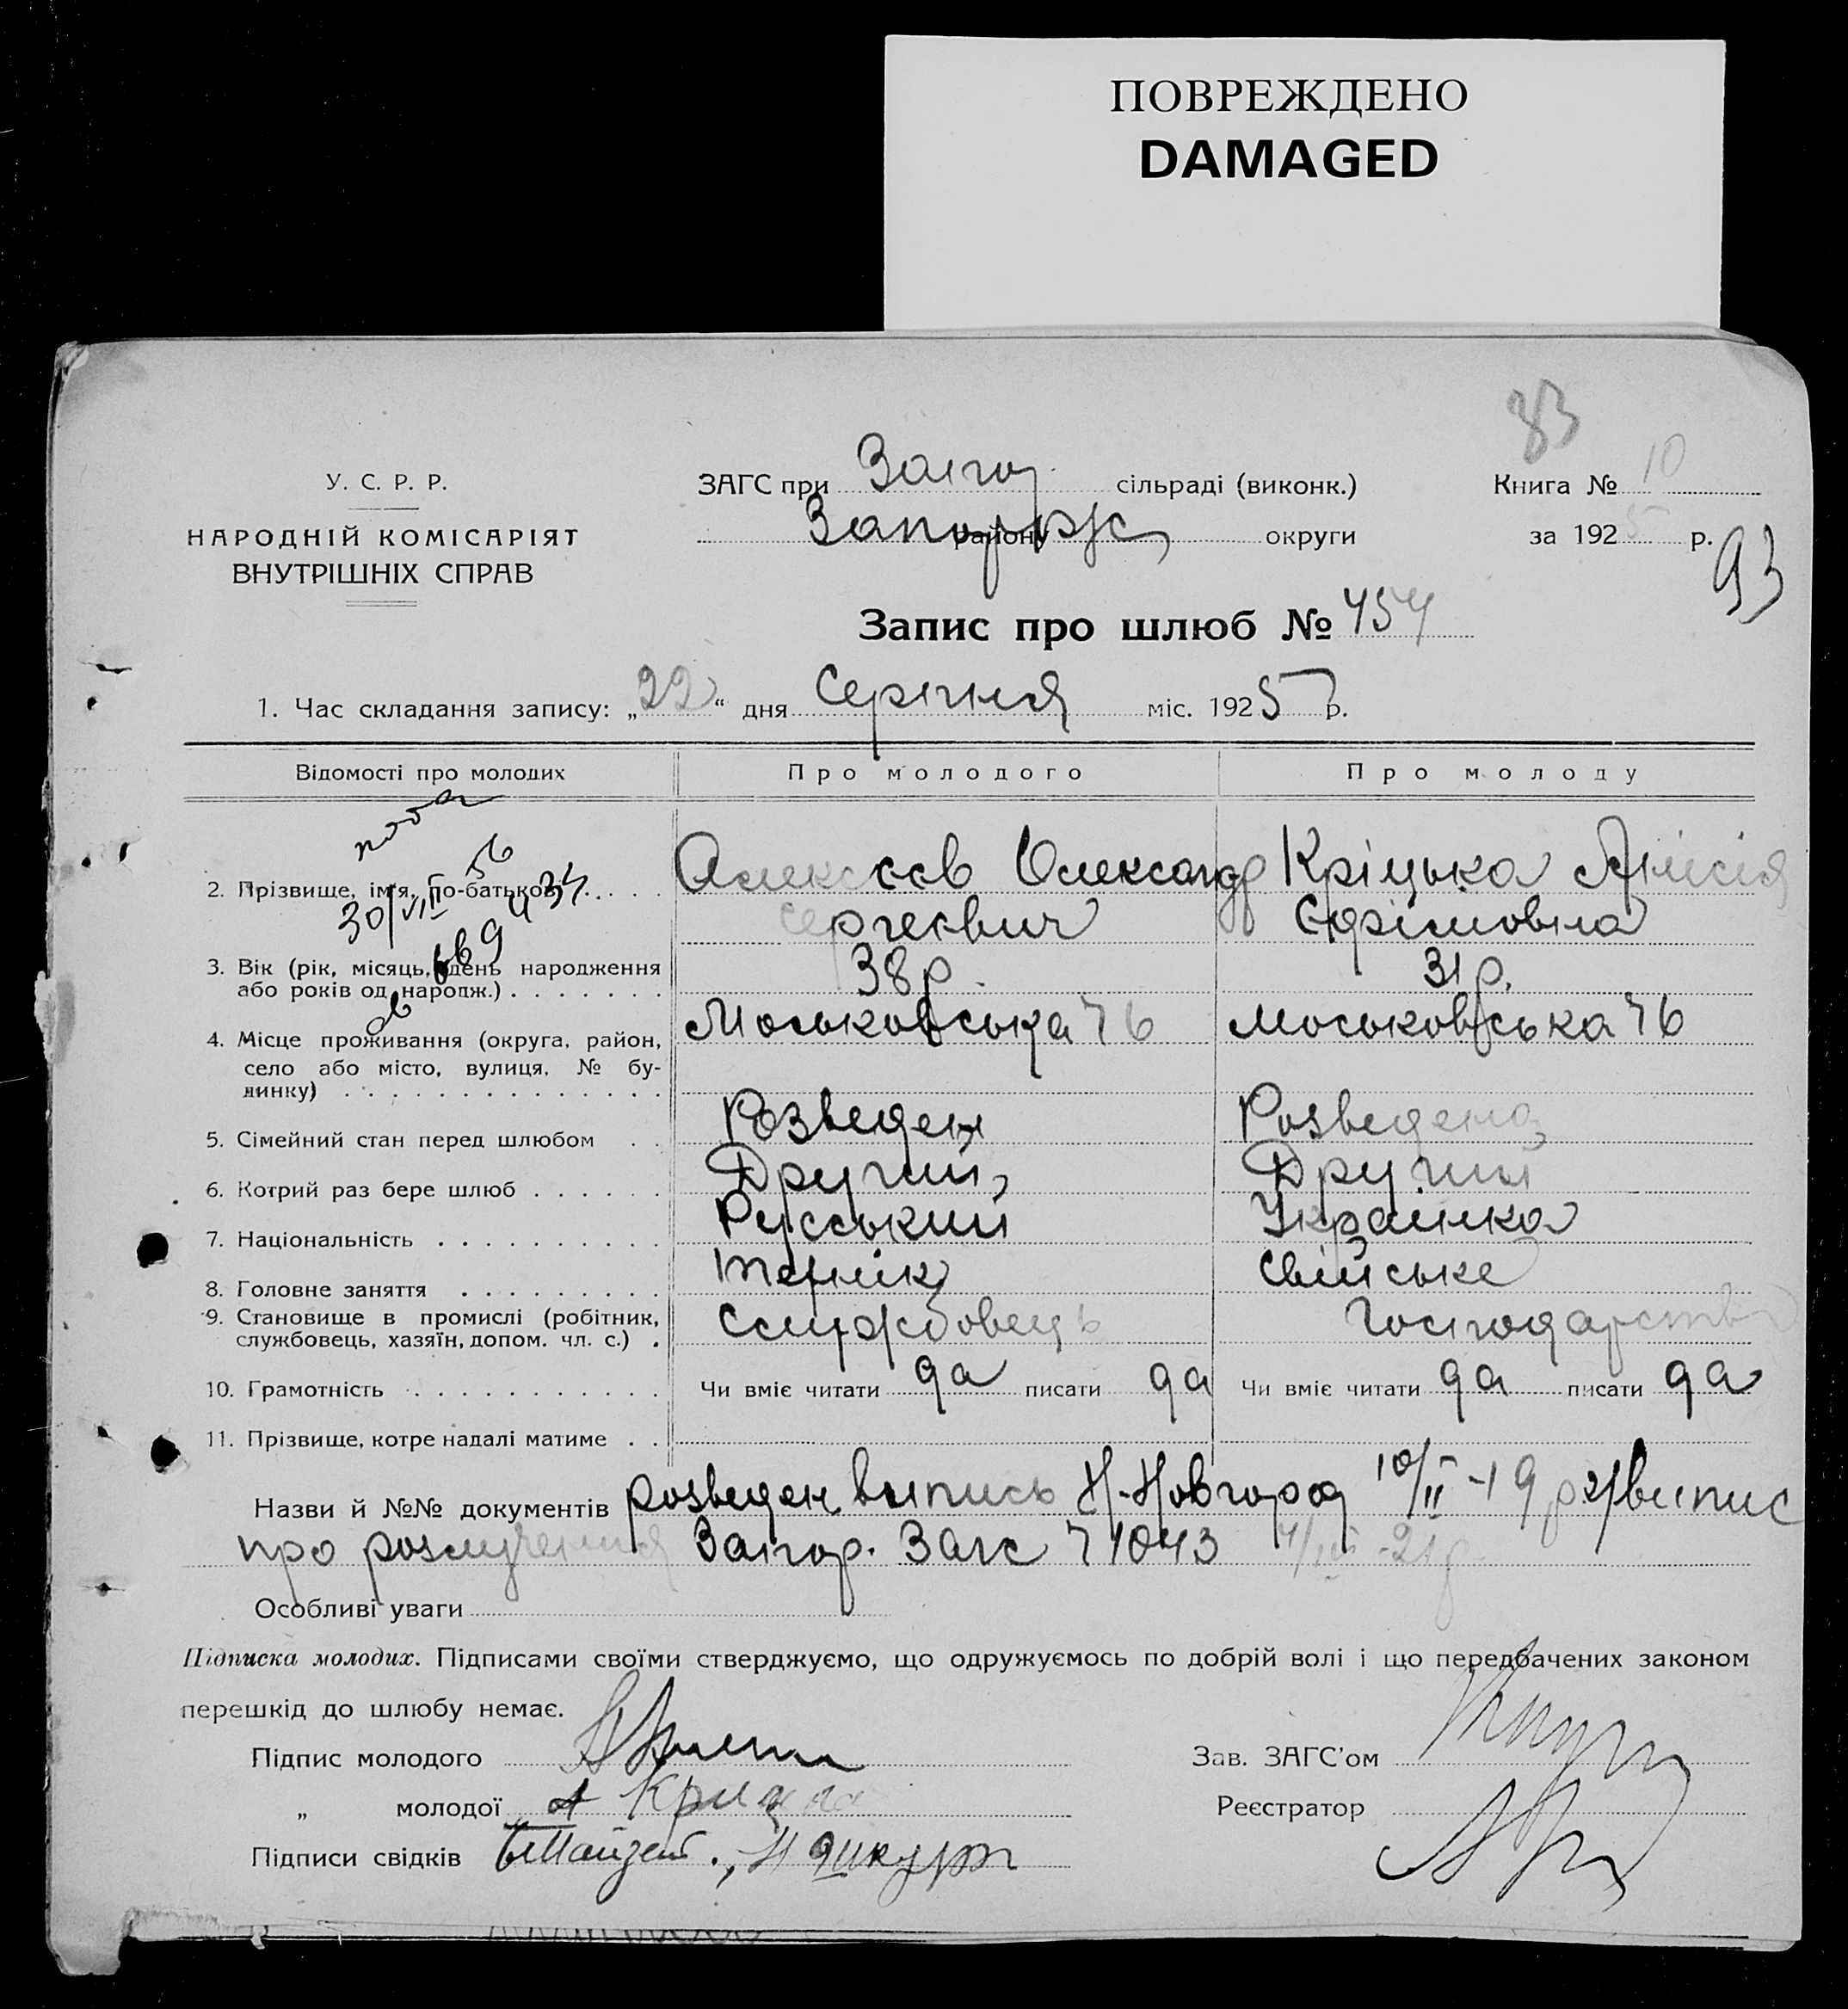 ПОВРЕЖДЕНО
DAMAGED
83
У. С. Р. Р.
НАРОДНІЙ КОМІСАРІЯТ
ВНУТРІШНІХ СПРАВ
ЗАГС при Запор сільраді (виконк.)
Запоріж району округи
Книга № 10
за 1925 р.
93
Запис про шлюб № 454
1. Час складання запису: „22“ дня Серпня міс. 1925 р.
Відомості про молодих
Про молодого
Про молоду
2. Прізвище, ім'я, по-батькові
Алексєєв Олександр Сергеєвич
Кріцька Анісія Єфімовна
3. Вік (рік, місяць, день народження або років од народж.)
38 р.
31 р.
4. Місце проживання (округа, район, село або місто, вулиця, № будинку)
Московська 76
Московська 76
5. Сімейний стан перед шлюбом
Розведен
Розведена
6. Котрий раз бере шлюб
Другий
Другий
7. Національність
Русський
Українка
8. Головне заняття
Технік
Свійське
9. Становище в промислі (робітник, службовець, хазяїн, допом. чл. с.)
Службовець
Господарство
10. Грамотність
Чи вміє читати да писати да
Чи вміє читати да писати да
11. Прізвище, котре надалі матиме
Назви й №№ документів розведен випись Н-Новгород 10/II-19 р 2/випис
про розлучення Запор. Загс 71043
Особливі уваги
Підписка молодих. Підписами своїми стверджуємо, що одружуємось по добрій волі і що передбачених законом
перешкід до шлюбу немає.
Підпис молодого
„ молодої А Крицка
Підписи свідків
Зав. ЗАГС'ом
Реєстратор